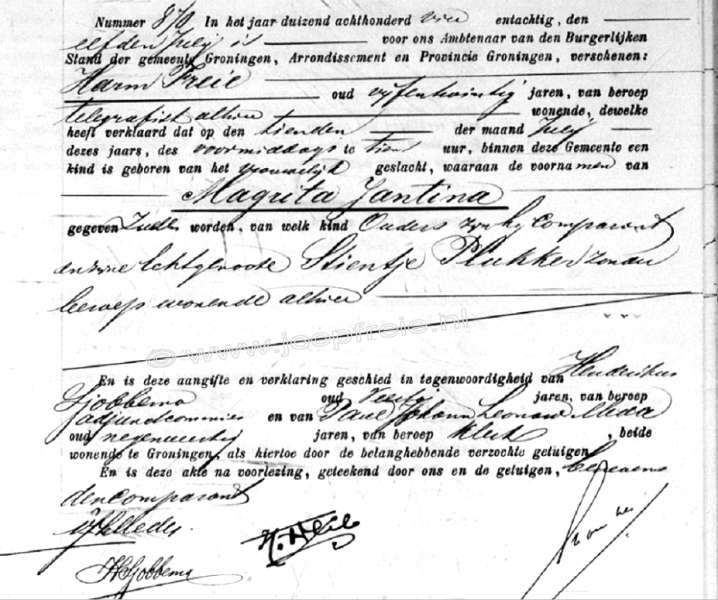 Nummer 870 In het jaar duizend achthonderd vier entachtig, den
elfden Julij is voor ons Ambtenaar van den Burgerlijken
Stand der gemeente Groningen, Arrondissement en Provincie Groningen, verschenen:
Harm Freie oud vijfentwintig jaren, van beroep
telegrafist alhier wonende, dewelke
heeft verklaard dat op den tienden der maand Julij
dezes jaars, des voormiddags te tien uur, binnen deze Gemeente een
kind is geboren van het vrouwelijk geslacht, waaraan de voornamen van
Magrita Jantina
gegeven zullen worden, van welk kind Ouders zijn hij Comparant
en zijne Echtgenoote Stientje Plukker zonder
beroep wonende alhier
© www.joopfreie.nl
En is deze aangifte en verklaring geschied in tegenwoordigheid van Hendrikus
Gjobbema oud veertig jaren, van beroep
adjunctcommies en van Paul Johann Leonard Meder
oud negenveertig jaren, van beroep klerk, beide
wonende te Groningen, als hiertoe door de belanghebbende verzochte getuigen
En is deze akte na voorlezing, geteekend door ons en de getuigen, benevens
den Comparant
Meder
H. Freie
HGjobbema